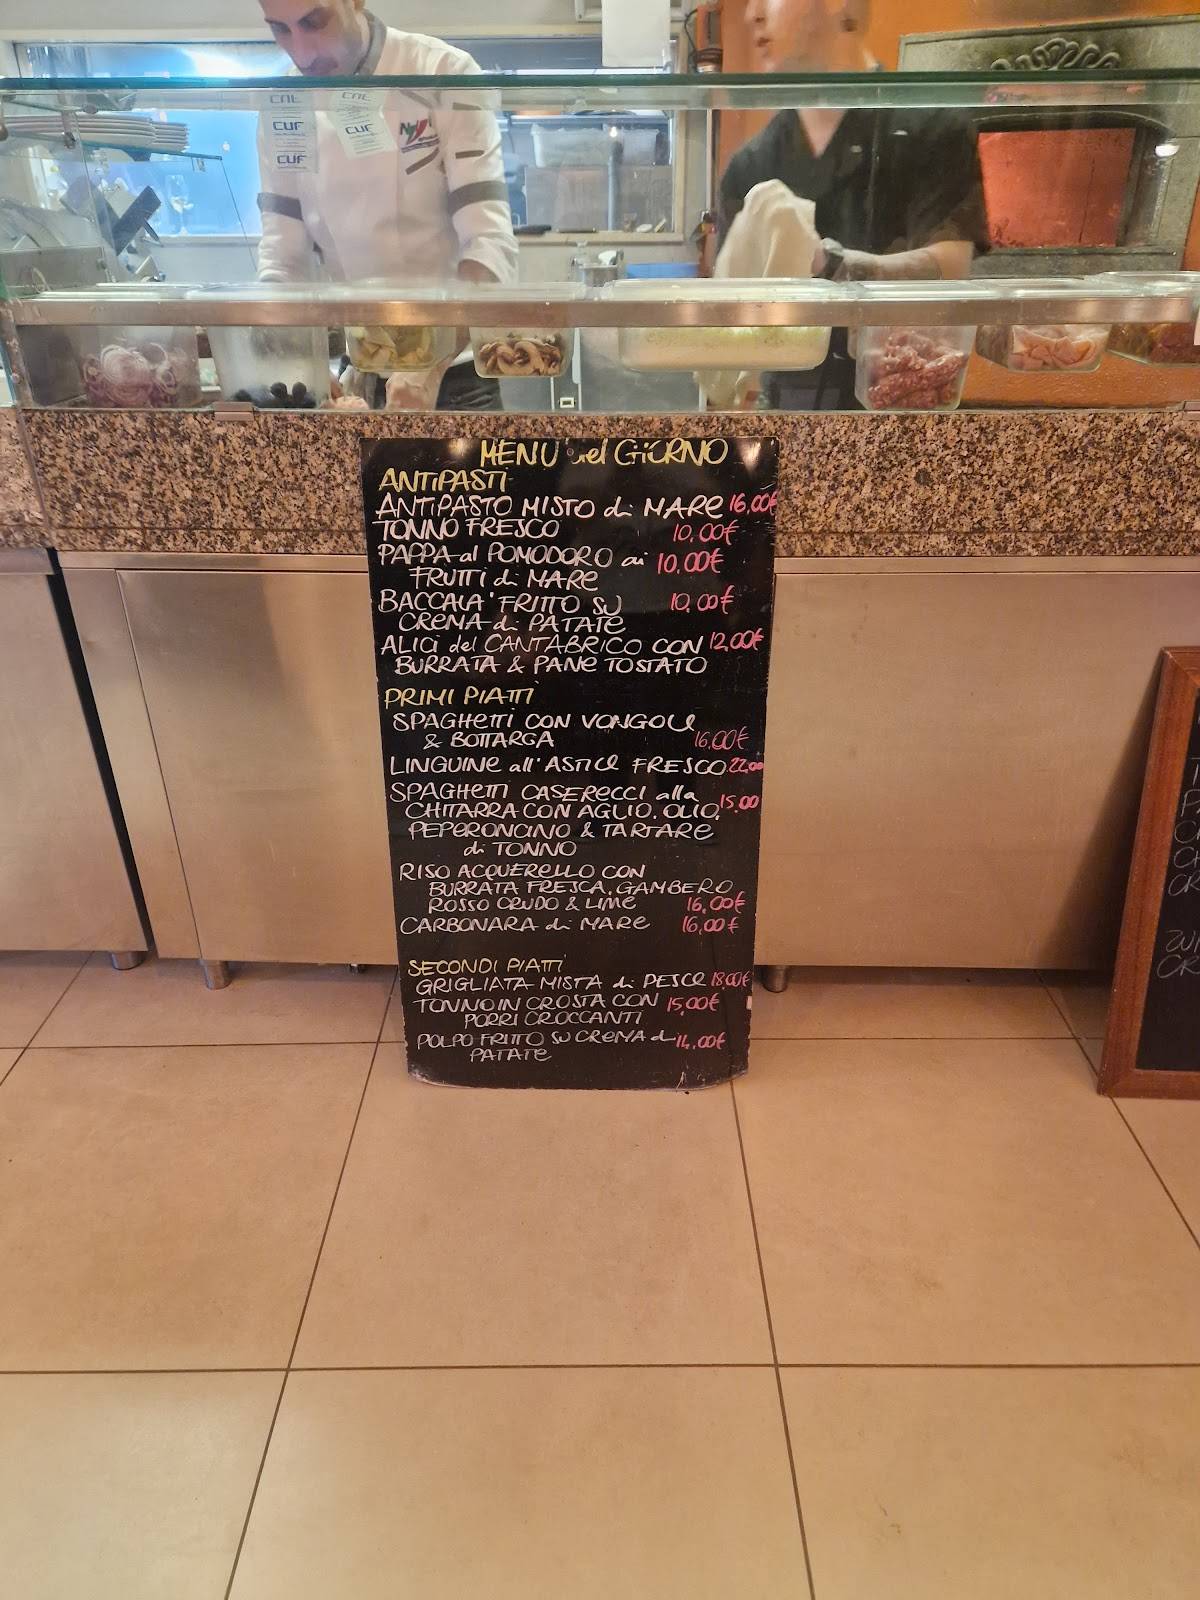 CUF
CUF
CUF
MENU del GIORNO
ANTIPASTI
ANTIPASTO MISTO di MARE 16,00€
TONNO FRESCO 10,00€
PAPPA al POMODORO ai 10,00€
FRUTTI di MARE
BACCALA' FRITTO SU 10,00€
CREMA di PATATE
ALICI del CANTABRICO CON 12,00€
BURRATA & PANE TOSTATO
PRIMI PIATTI
SPAGHETTI CON VONGOLE
& BOTTARGA 16,00€
LINGUINE all'ASTICE FRESCO 22,00
SPAGHETTI CASERECCI alla
CHITARRA CON AGLIO, OLIO, 15,00
PEPERONCINO & TARTARE
di TONNO
RISO ACQUERELLO CON
BURRATA FRESCA, GAMBERO
ROSSO CRUDO & LIME 16,00€
CARBONARA di MARE 16,00€
SECONDI PIATTI
GRIGLIATA MISTA di PESCE 18,00€
TONNO IN CROSTA CON 15,00€
PORRI CROCCANTI
POLPO FRITTO SU CREMA di 14,00€
PATATE